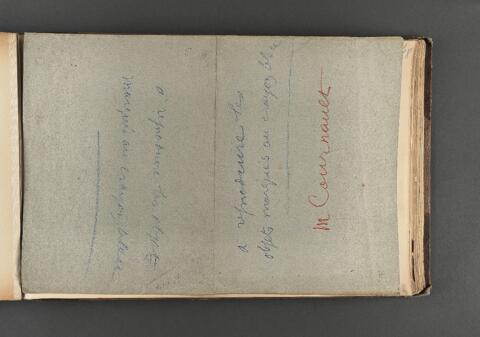 a reproduire les objets
marqués au crayon bleu
a reproduire les
objets marqués au crayon bleu
M Cournault